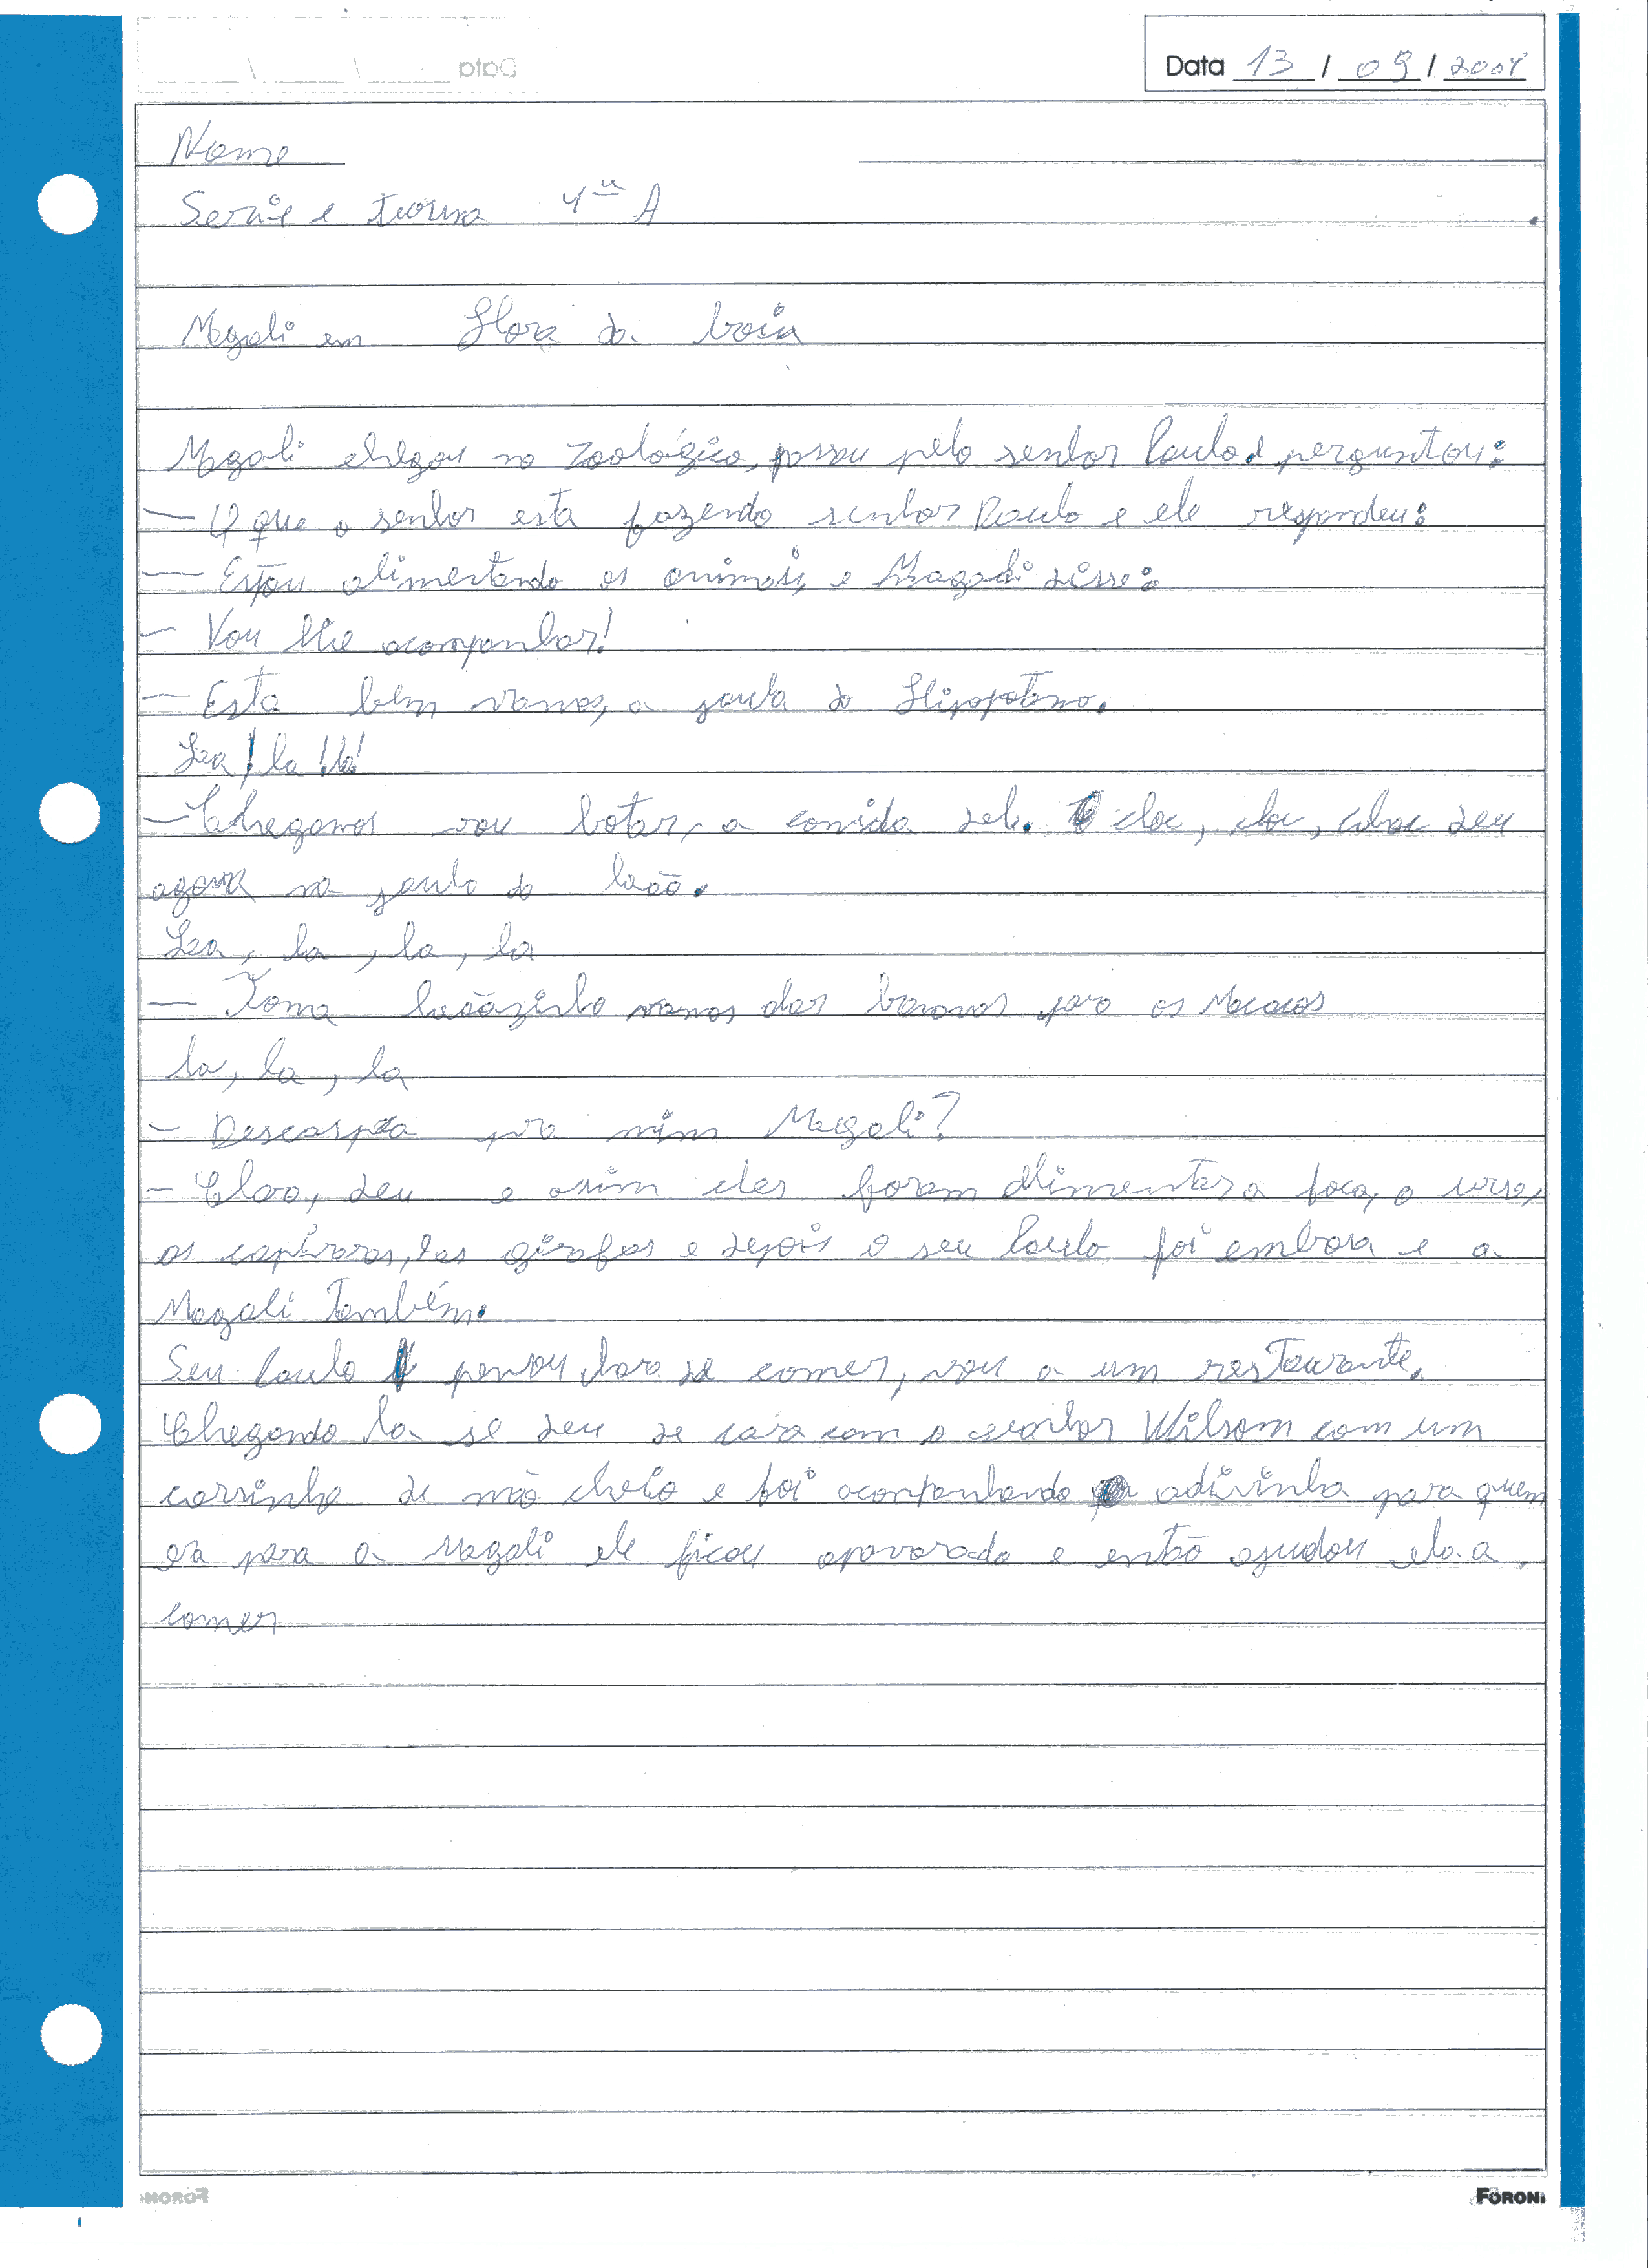 Data 13 / 09 / 2001
Nome
Serie e turma 4ª A
Magali em Hora da boia
Magali chegou no zoológico, passou pelo senhor Paulo e perguntou:
— O que o senhor esta fazendo senhor Paulo e ele respondeu:
— Estou alimentando os animais, e Magali disse:
— Vou lhe acompanhar!
— Esta bem vamos, a jaula do Hipopotamo.
Lea! la! la!
— Chegamos vou botar, a comida dele. cloc, cloc, cloc deu
agora na jaula do leão.
Lea, la, la, la
— Toma leãozinho vamos dar bananas para os Macacos
la, la, la
— Descaspca pra mim Magali?
— Claro, seu e assim eles foram alimentar a foca, o urso,
as capivaras, as girafas e depois o seu Paulo foi embora e a
Magali Também.
Seu Paulo pensou hora de comer, vou a um restaurante.
Chegando la se deu de cara com o senhor Wilsom com um
carrinho de mão cheio e foi acompanhando adivinha para quem
era para a Magali ele ficou apavorado e então ajudou ela a
comer
FORONI